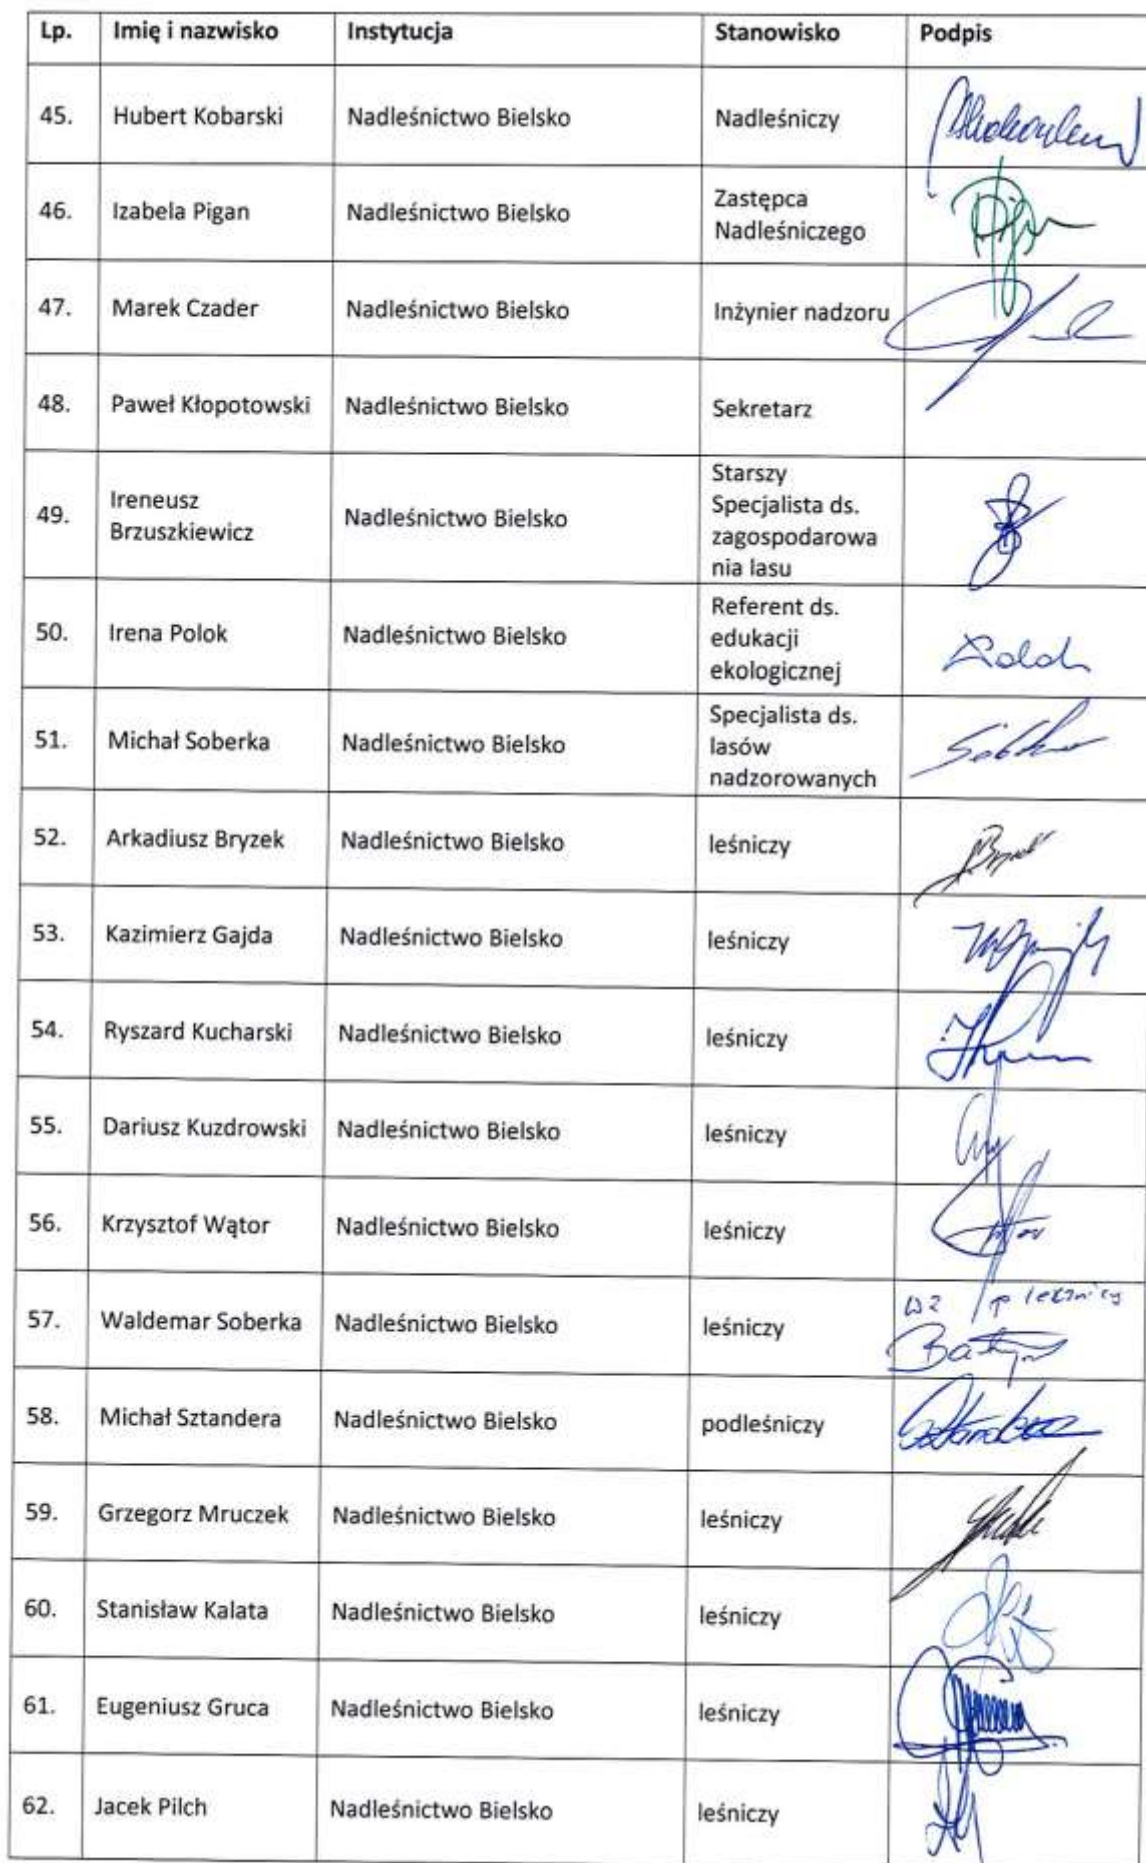 Lp. Imię i nazwisko Instytucja Stanowisko Podpis
45. Hubert Kobarski Nadleśnictwo Bielsko Nadleśniczy
46. Izabela Pigan Nadleśnictwo Bielsko Zastępca
Nadleśniczego
47. Marek Czader Nadleśnictwo Bielsko Inżynier nadzoru
48. Paweł Kłopotowski Nadleśnictwo Bielsko Sekretarz
49. Ireneusz
Brzuszkiewicz Nadleśnictwo Bielsko Starszy
Specjalista ds.
zagospodarowa
nia lasu
50. Irena Polok Nadleśnictwo Bielsko Referent ds.
edukacji
ekologicznej
51. Michał Soberka Nadleśnictwo Bielsko Specjalista ds.
lasów
nadzorowanych
52. Arkadiusz Bryzek Nadleśnictwo Bielsko leśniczy
53. Kazimierz Gajda Nadleśnictwo Bielsko leśniczy
54. Ryszard Kucharski Nadleśnictwo Bielsko leśniczy
55. Dariusz Kuzdrowski Nadleśnictwo Bielsko leśniczy
56. Krzysztof Wątor Nadleśnictwo Bielsko leśniczy
57. Waldemar Soberka Nadleśnictwo Bielsko leśniczy
58. Michał Sztandera Nadleśnictwo Bielsko podleśniczy
59. Grzegorz Mruczek Nadleśnictwo Bielsko leśniczy
60. Stanisław Kalata Nadleśnictwo Bielsko leśniczy
61. Eugeniusz Gruca Nadleśnictwo Bielsko leśniczy
62. Jacek Pilch Nadleśnictwo Bielsko leśniczy